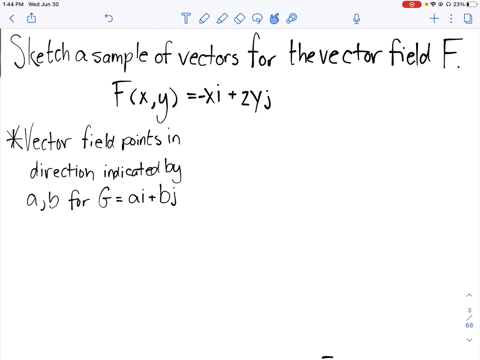 1:44 PM Wed Jun 30
23%
Sketch a sample of vectors for the vector field F.
F(x,y) = -xi + 2yj
*Vector field points in
direction indicated by
a,b for G = ai + bj
3
/
68